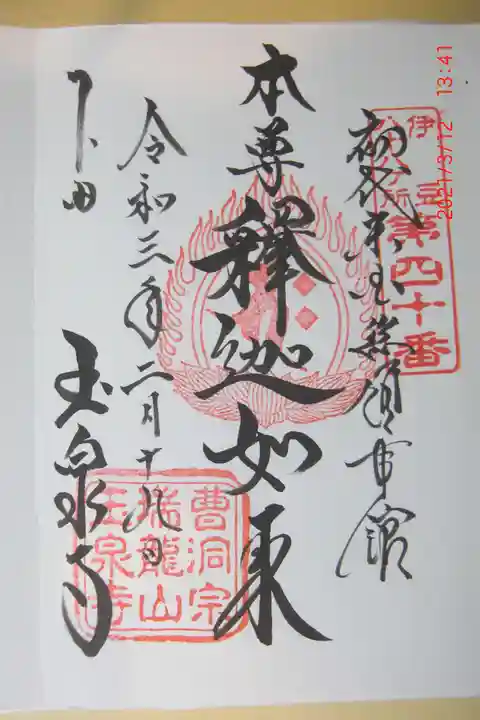 2021/3/12 13:41
伊豆
八十八ヶ所
第四十番
初代米国総領事館
本尊 釋迦如来
令和三年二月十九日
下田 玉泉寺
曹洞宗
瑞龍山
玉泉寺